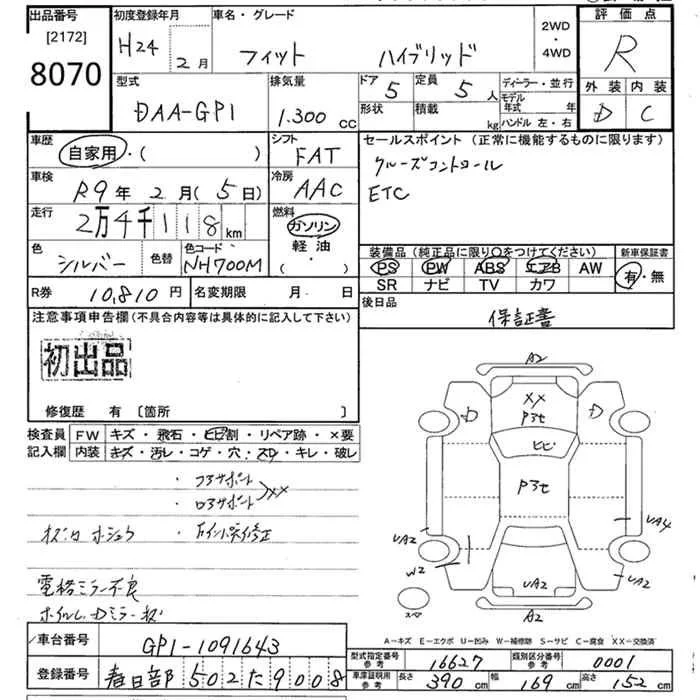 出品番号
[2172]
8070
初度登録年月
H24 2月
車名・グレード
フィット ハイブリッド
2WD
・
4WD
評価点
R
外装 内装
D C
型式
DAA-GP1
排気量
1.300 cc
ドア 5
定員 5 人
形状
積載 kg
ディーラー・並行
モデル年式 年
ハンドル 左・右
車歴
自家用・( )
シフト
FAT
セールスポイント (正常に機能するものに限ります)
クルーズコントロール
ETC
車検
R9年 2月( 5日)
冷房
AAC
走行
2万4千118km
燃料
ガソリン
軽油
・( )
色
シルバー
色替
色コード
NH700M
装備品(純正品に限り○をつけてください)
PS PW ABS エアB AW
SR ナビ TV カワ
新車保証書
有・無
R券 10,810円
名変期限 月 日
後日品
保証書
注意事項申告欄(不具合内容等は具体的に記入して下さい)
初出品
修復歴 有 [箇所 ]
検査員記入欄
FW キズ・飛石・ヒビ割・リペア跡・×要
内装 キズ・汚レ・コゲ・穴・スレ・キレ・破レ
・コアサポート
・ロアサポート
XX
電格ミラー不良
A2
XX
D D
ヒビ
UA2
UA4
W2
UA2
UA2
A2
スペア
A-キズ E-エクボ U-凹み W-補修跡 S-サビ C-腐食 XX-交換済
車台番号
GP1-1091643
登録番号
春日部 502 た 9008
型式指定番号
参考
16627
類別区分番号
参考
0001
車庫証明用
参考
長さ 390cm 幅 169cm 高さ 152cm